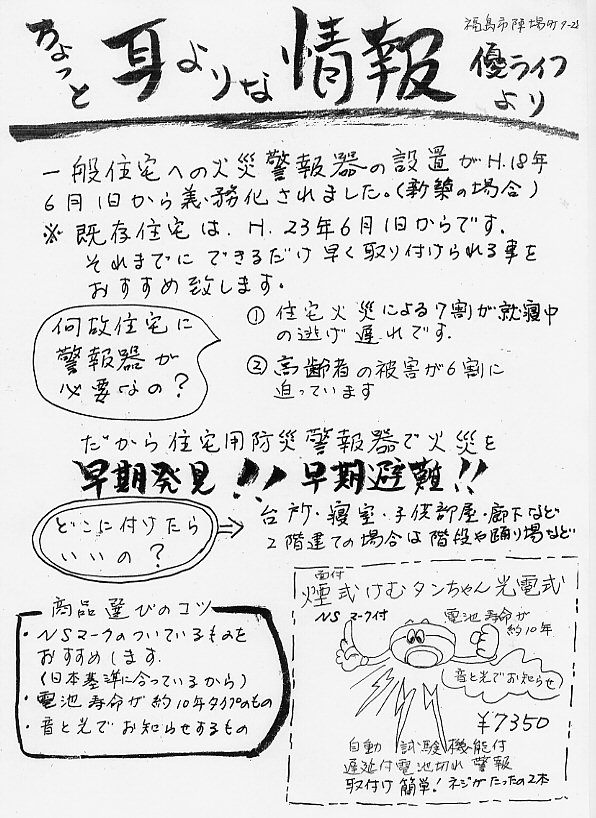 ちょっと 耳よりな 情報
福島市陣場町9-21
優ライフ
より
一般住宅への火災警報器の設置がH.18年
6月1日から義務化されました。(新築の場合)
※ 既存住宅は、H.23年6月1日からです.
それまでに できるだけ早く取り付けられる事を
おすすめ致します。
何故住宅に
警報器が
必要なの?
① 住宅火災による7割が就寝中
の逃げ遅れです.
② 高齢者の被害が6割に
迫っています
だから住宅用防災警報器で火災を
早期発見!! 早期避難!!
どこに付けたら
いいの?
台所・寝室・子供部屋・廊下など
2階建ての場合は階段や踊り場など
商品選びのコツ
・NSマークのついているものを
おすすめします.
(日本基準に合っているから)
・電池寿命が約10年タイプのもの
・音と光でお知らせするもの
面付
煙式けむタンちゃん光電式
NSマーク付
電池寿命が
約10年
音と光でお知らせ
¥7350
自動試験機能付
遅延付電池切れ警報
取付け簡単!ネジがたったの2本